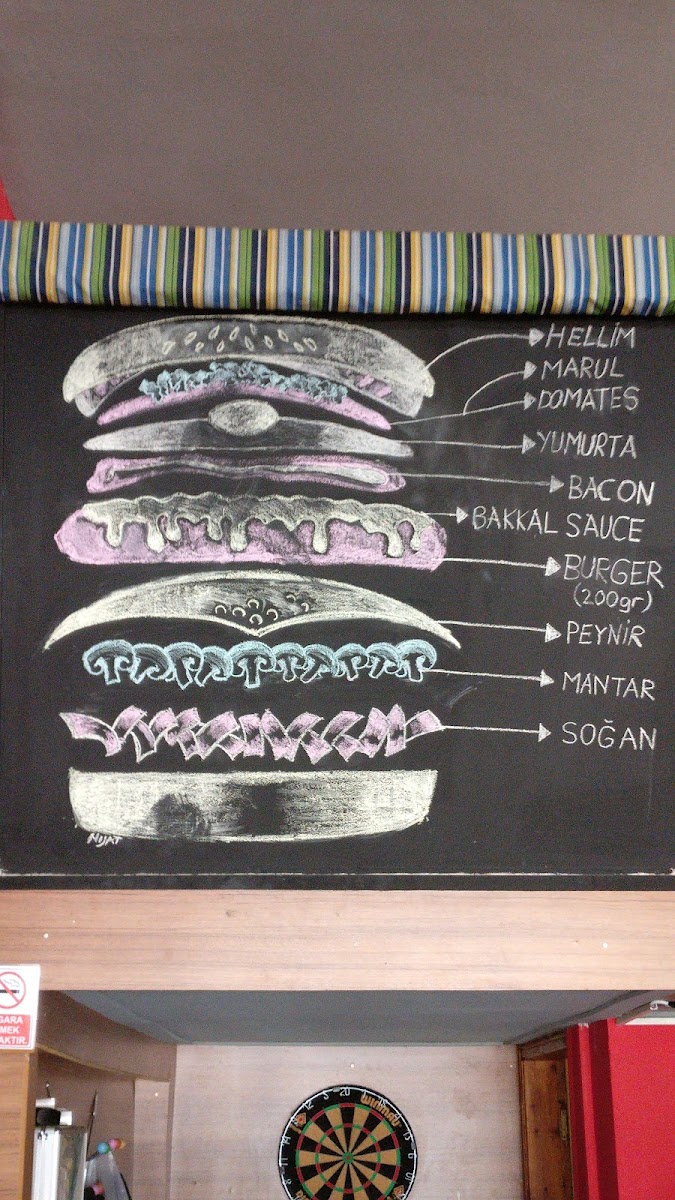 HELLİM
MARUL
DOMATES
YUMURTA
BACON
BAKKAL SAUCE
BURGER
(200gr)
PEYNİR
MANTAR
SOĞAN
NIJAT
GARA
MEK
AKTIR.
12 5 20
winmau